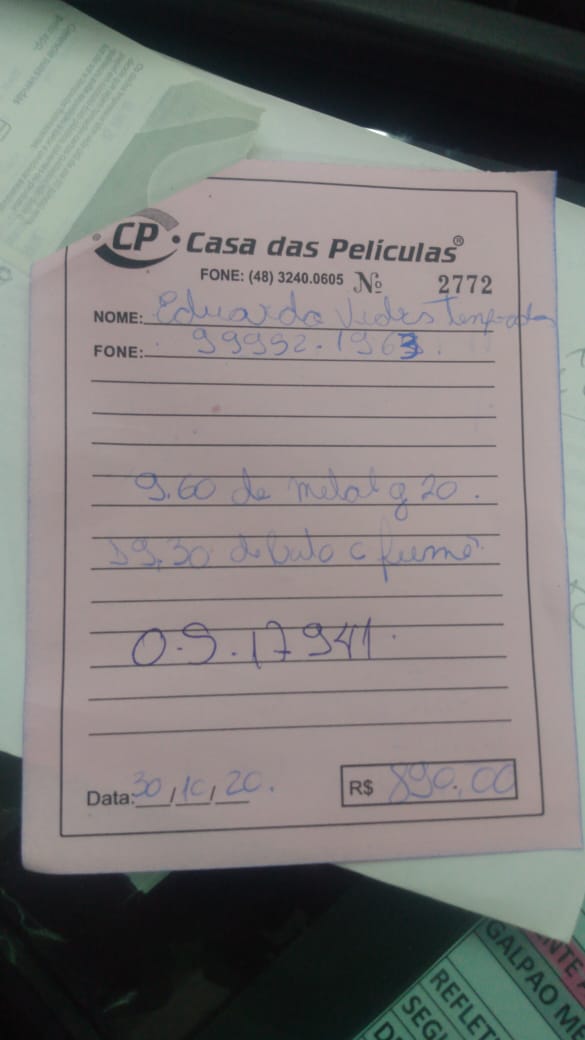 CP · Casa das Películas®
FONE: (48) 3240.0605 Nº 2772
NOME: Eduarda Vidros Temperados
FONE: 99992.1963
9.60 de metal g 20.
59,30 de fumê
O.S. 17941.
Data: 30/10/20.
R$ 890,00
GALPAO
REFLET
SEGU